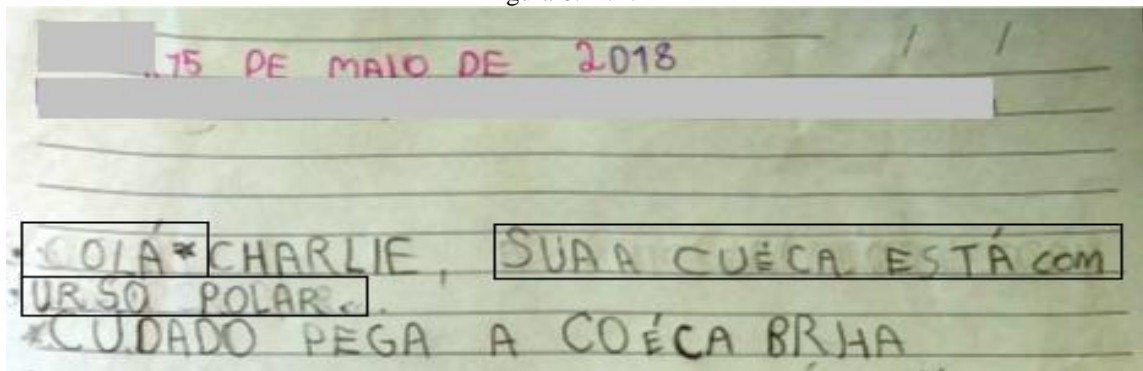 15 DE MAIO DE 2018 / /
OLÁ*CHARLIE, SUA A CUÉCA ESTÁ com
URSO POLAR...
*CUDADO PEGA A COÉCA BRHA